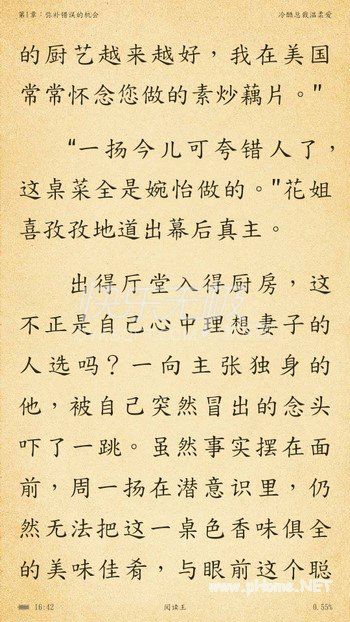 第1章：弥补错误的机会 冷酷总裁温柔爱
的厨艺越来越好，我在美国
常常怀念您做的素炒藕片。”
“一扬今儿可夸错人了，
这桌菜全是婉怡做的。”花姐
喜孜孜地道出幕后真主。
出得厅堂入得厨房，这
不正是自己心中理想妻子的
人选吗？一向主张独身的
他，被自己突然冒出的念头
吓了一跳。虽然事实摆在面
前，周一扬在潜意识里，仍
然无法把这一桌色香味俱全
的美味佳肴，与眼前这个聪
www.pHome.NET
16:42 阅读王 0.55%